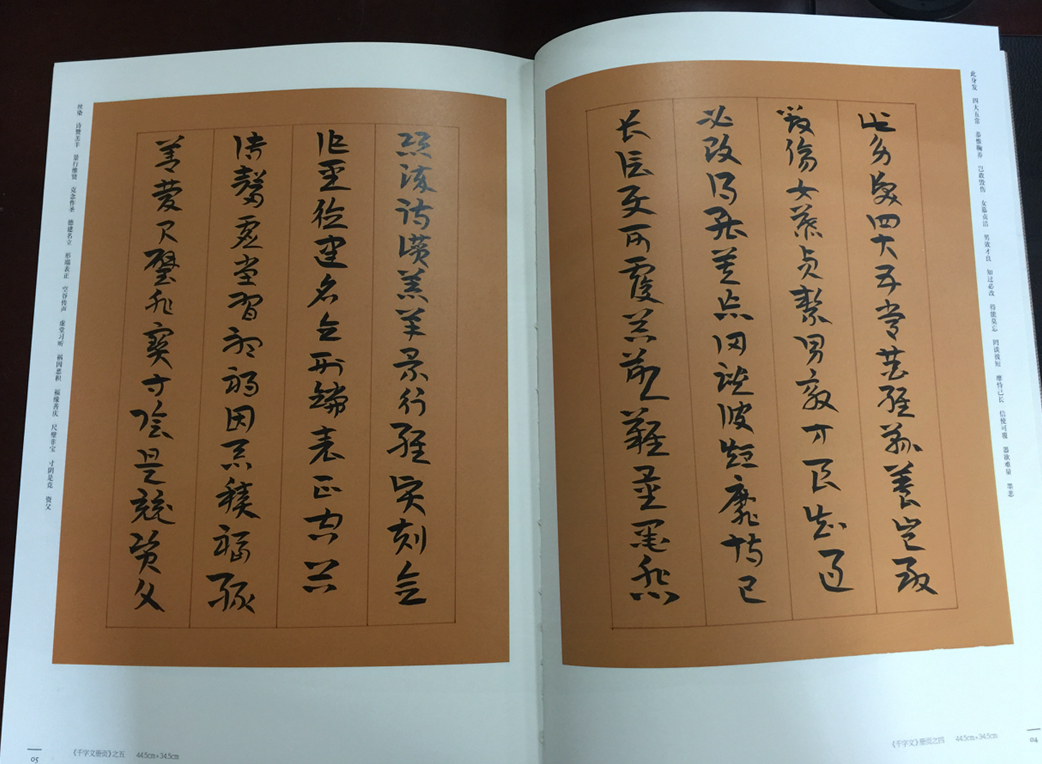 此身发 四大五常 恭惟鞠养 岂敢毁伤 女慕贞洁 男效才良 知过必改 得能莫忘 罔谈彼短 靡恃己长 信使可覆 器欲难量 墨悲
此身髮四大五常恭惟鞠養豈敢
毀傷女慕貞絜男效才良知過
必改得能莫忘罔談彼短靡恃己
長信使可覆器欲難量墨悲
《千字文》册页之四 44.5cm×34.5cm
04
絲染詩讚羔羊景行維賢剋念
作聖德建名立形端表正空谷
傳聲虛堂習聽禍因惡積福緣
善慶尺璧非寶寸陰是競資父
丝染 诗赞羔羊 景行维贤 克念作圣 德建名立 形端表正 空谷传声 虚堂习听 祸因恶积 福缘善庆 尺璧非宝 寸阴是竞 资父
《千字文》册页之五 44.5cm×34.5cm
05